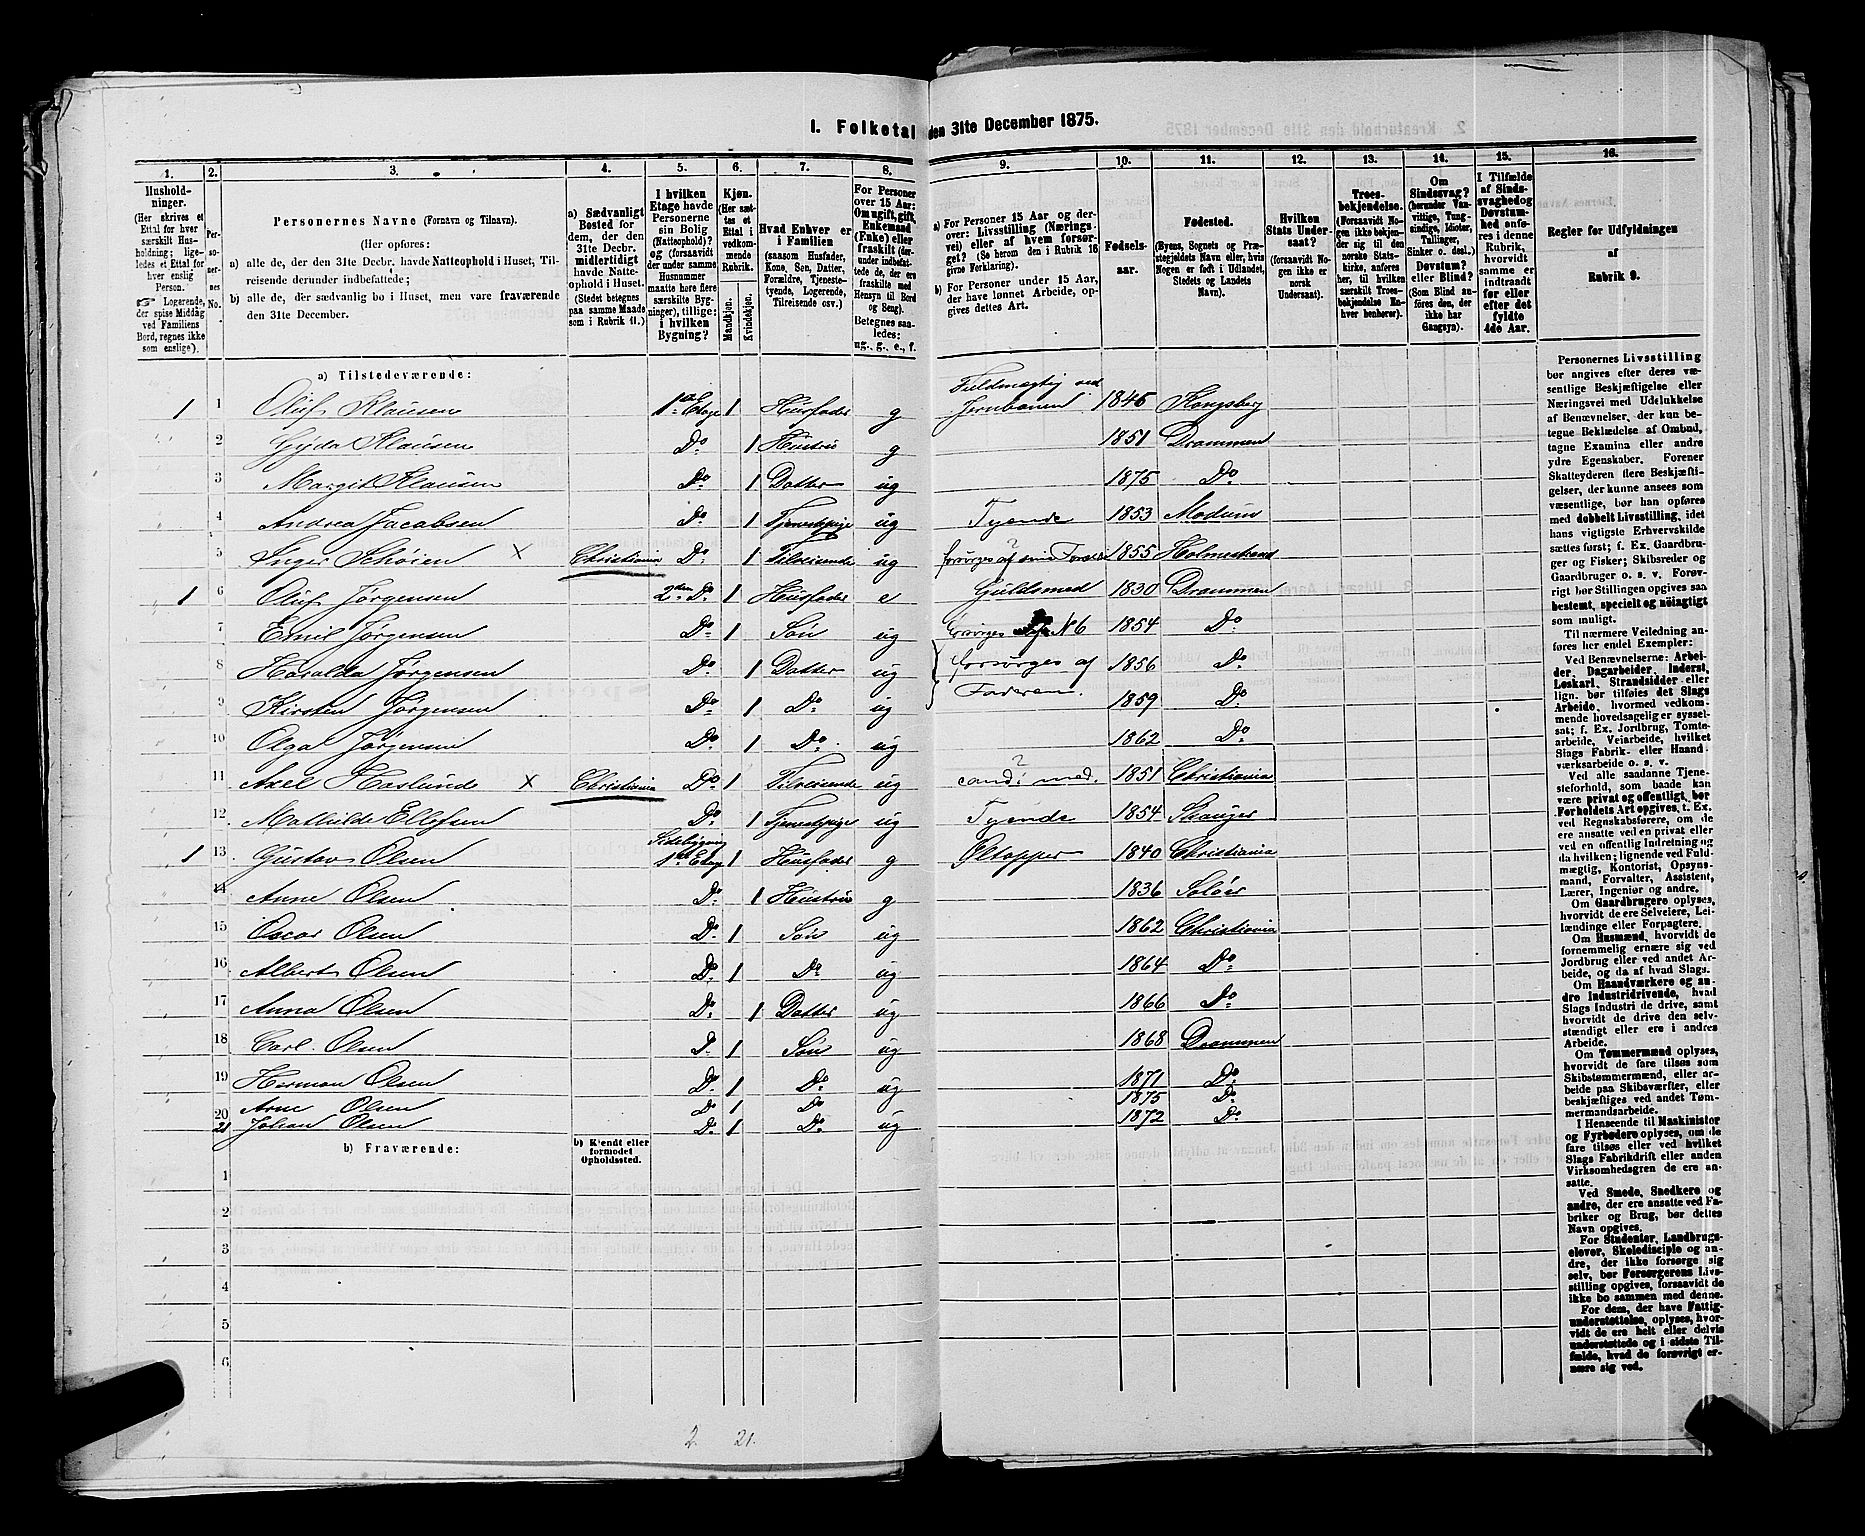 1. Folketal den 31te December 1875.
1. 2. 3. 4. 5. 6. 7. 8. 9. 10. 11. 12. 13. 14. 15. 16.
Husholdninger.
(Her skrives et Ettal for hver særskilt Husholdning; ligeledes et Ettal for hver enslig Person.
Logerende, der spise Middag ved Familiens Bord, regnes ikke som enslige).
Personernes No.
Personernes Navne (Fornavn og Tilnavn).
(Her opføres:
a) alle de, der den 31te Decbr. havde Natteophold i Huset, Tilreisende derunder indbefattede;
b) alle de, der sædvanlig bo i Huset, men vare fraværende den 31te December.
a) Sædvanligt Bosted for dem, der den 31te Decbr. midlertidigt havde Natteophold i Huset.
(Stedet betegnes paa samme Maade som i Rubrik 11.)
I hvilken Etage havde Personerne sin Bolig (Natteophold)? og (forsaavidt der under samme Husnummer maatte høre flere særskilte Bygninger), tillige: i hvilken Bygning?
Kjøn. (Her sættes et Ettal i vedkommende Rubrik.
Mandkjøn. Kvindekjøn.
Hvad Enhver er i Familien
(saasom Husfader, Kone, Søn, Datter, Forældre, Tjenestetyende, Logerende, Tilreisende osv.)
For Personer over 15 Aar: Om ugift, gift, Enkemand (Enke) eller fraskilt (derunder indbefattede de, der ere fraskilte med Hensyn til Bord og Seng).
Betegnes saaledes: ug., g., e., f.
a) For Personer 15 Aar og derover: Livsstilling (Næringsvei) eller af hvem forsørget? (Se herom den i Rubrik 16 givne Forklaring).
b) For Personer under 15 Aar, der have lønnet Arbeide, opgives dettes Art.
Fødselsaar.
Fødested.
(Byens, Sognets og Præstegjeldets Navn, eller, hvis Nogen er født i Udlandet, Stedets og Landets Navn).
Hvilken Stats Undersaat? (forsaavidt Nogen ikke er norsk Undersaat).
Troesbekjendelse. (Forsaavidt Nogen ikke bekjender sig til den norske Statskirke, anføres her, til hvilken særskilt Troesbekjendelse Enhver henhører).
Om Sindssvag? (herunder Vanvittige, Tungsindige, Idioter, Tullinger, Sinker o. desl.). Døvstum? eller Blind? (Som Blind anføres den, der ikke har Gangsyn).
I Tilfælde af Sindssvaghed og Døvstumhed anføres i denne Rubrik, hvorvidt samme er indtraadt før eller efter det fyldte 4de Aar.
Regler for Udfyldningen af Rubrik 9.
a) Tilstedeværende:
1 1 Oluf Klausen 1ste Etage 1 Husfader g Fuldmægtig ved Jernbanen 1846 Kongsberg
2 Gyda Klausen Do 1 Hustru g 1851 Drammen
3 Margit Klausen Do 1 Datter ug 1875 Do
4 Andrea Jacobsen Do 1 Tjenestpige ug Tyende 1853 Modum
5 Inger Schöien X Christiania Do 1 Tilreisende ug forsørges af sine Forældre ? 1855 Holmestrand
1 6 Oluf Jørgensen 2den Do 1 Husfader e Guldsmed 1830 Drammen
7 Emil Jørgensen Do 1 Søn ug forsørges af N6 1854 Do
8 Haralda Jørgensen Do 1 Datter ug forsørges af 1856 Do
9 Kirsten Jørgensen Do 1 Do ug Faderen. 1859 Do
10 Olga Jørgensen Do 1 Do ug 1862 Do
11 Axel Haslund X Christiania Do 1 Tilreisende ug cand: med. ? 1851 Christiania
12 Mathilde Ellefsen Do 1 Tjenestpige ug Tyende 1854 Skauger
1 13 Gustav Olsen Sidebygning 1ste Etage 1 Husfader g Øltapper 1840 Christiania
14 Anne Olsen Do 1 Hustru g 1836 Soløer
15 Oscar Olsen Do 1 Søn ug 1862 Christiania
16 Albert Olsen Do 1 Do ug 1864 Do
17 Anna Olsen Do 1 Datter ug 1866 Do
18 Carl Olsen Do 1 Søn ug 1868 Drammen
19 Herman Olsen Do 1 Do ug 1871 Do
20 Arne Olsen Do 1 Do 1875 Do
21 Johan Olsen Do 1 Do ug 1872 Do
b) Fraværende:
b) Kjendt eller formodet Opholdssted.
1
2
3
4
5
6
2 21.
Personernes Livsstilling bør angives efter deres væsentlige Beskjæftigelse eller Næringsvei med Udelukkelse af Benævnelser, der kun betegne Beklædelse af Ombud, tagne Examina eller andre ydre Egenskaber. Forener Skatteyderen flere Beskjæftigelser, der kunne ansees som væsentlige, bør han opføres med dobbelt Livsstilling, idet hans vigtigste Erhvervskilde sættes først; f. Ex. Gaardbruger og Fisker; Skibsreder og Gaardbruger o. s. v. Forøvrigt bør Stillingen opgives saa bestemt, specielt og nøiagtigt som muligt.
Til nærmere Veiledning anføres her endel Exempler:
Ved Benævnelserne: Arbeider, Dagarbeider, Inderst, Løskarl, Strandsidder eller lign. bør tilføies det Slags Arbeide, hvormed vedkommende hovedsagelig er sysselsat; f. Ex. Jordbrug, Tomtearbeide, Veiarbeide, hvilket Slags Fabrik- eller Haandværksarbeide o. s. v.
Ved alle saadanne Tjenesteforhold, som baade kan være privat og offentligt, bør Forholdets Art opgives, t. Ex. ved Regnskabsførere, om de ere ansatte ved en privat eller ved en offentlig Indretning og da hvilken; lignende ved Fuldmægtig, Kontorist, Opsynsmand, Forvalter, Assistent, Lærer, Ingeniør og andre.
Om Gaardbrugere oplyses, hvorvidt de ere Selveiere, Leilændinge eller Forpagtere.
Om Husmænd, hvorvidt de fornemmelig ernære sig ved Jordbrug eller ved andet Arbeide, og da af hvad Slags.
Om Haandværkere og andre Industridrivende, hvad Slags Industri de drive, samt hvorvidt de drive den selvstændigt eller ere i andres Arbeide.
Om Tømmermænd oplyses, hvorvidt de fare tilsøs som Skibstømmermænd, eller arbeide paa Skibsværfter, eller beskjæftiges ved andet Tømmermandsarbeide.
I Henseende til Maskinister og Fyrbødere oplyses, om de fare tilsøs eller ved hvilket Slags Fabrikdrift eller anden Virksomhedsgren de ere ansatte.
Ved Smede, Snedkere og andre, der ere ansatte ved Fabriker og Brug, bør dettes Navn opgives.
For Studenter, Landbrugselever, Skoledisciple og andre, der ikke forsørge sig selv, bør Forsørgerens Livsstilling opgives, forsaavidt de ikke bo sammen med denne.
For dem, der have Fattigunderstøttelse, oplyses, hvorvidt de ere helt eller delvis understøttede og i sidste Tilfælde, hvad de forøvrigt ernære sig ved.